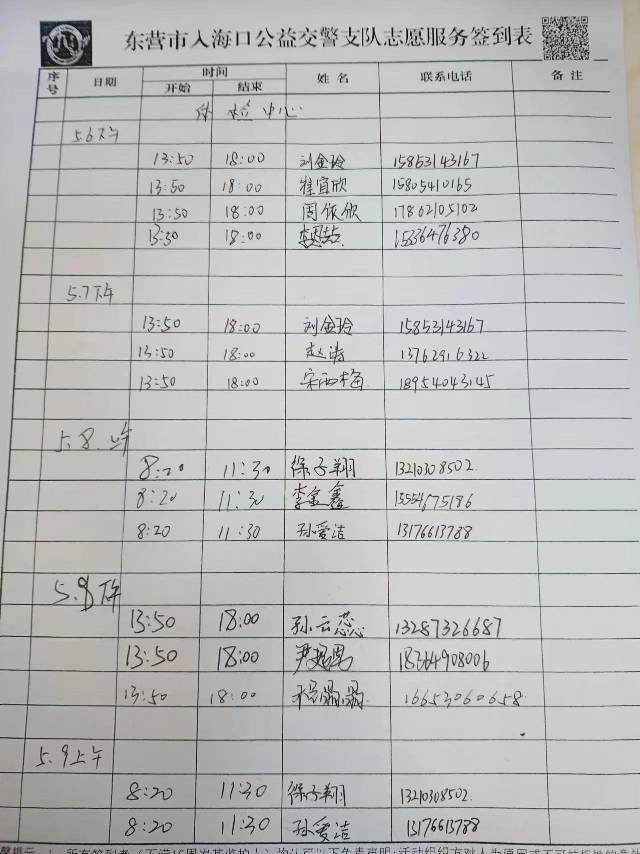 东营市入海口公益交警支队志愿服务签到表
序号 日期 时间 姓名 联系电话 备注
开始 结束
体检中心
5.6下午
13:50 18:00 刘金玲 15853143167
13:50 18:00 崔宜欣 15805410165
13:50 18:00 周依欣 17862105102
13:50 18:00 15336476380
5.7下午
13:50 18:00 刘金玲 15853143167
13:50 18:00 赵涛 13762916322
13:50 18:00 宋西梅 18954043145
5.8.上午
8:20 11:30 徐子翔 13210308502.
8:20 11:30 李金鑫 13554675186
8:20 11:30 孙爱洁 13176613788
5.8下午
13:50 18:00 孙云蕊 13287326687
13:50 18:00 18364908006
13:50 18:00 16653060658
5.9上午
8:20 11:30 徐子翔 13210308502.
8:20 11:30 孙爱洁 13176613788